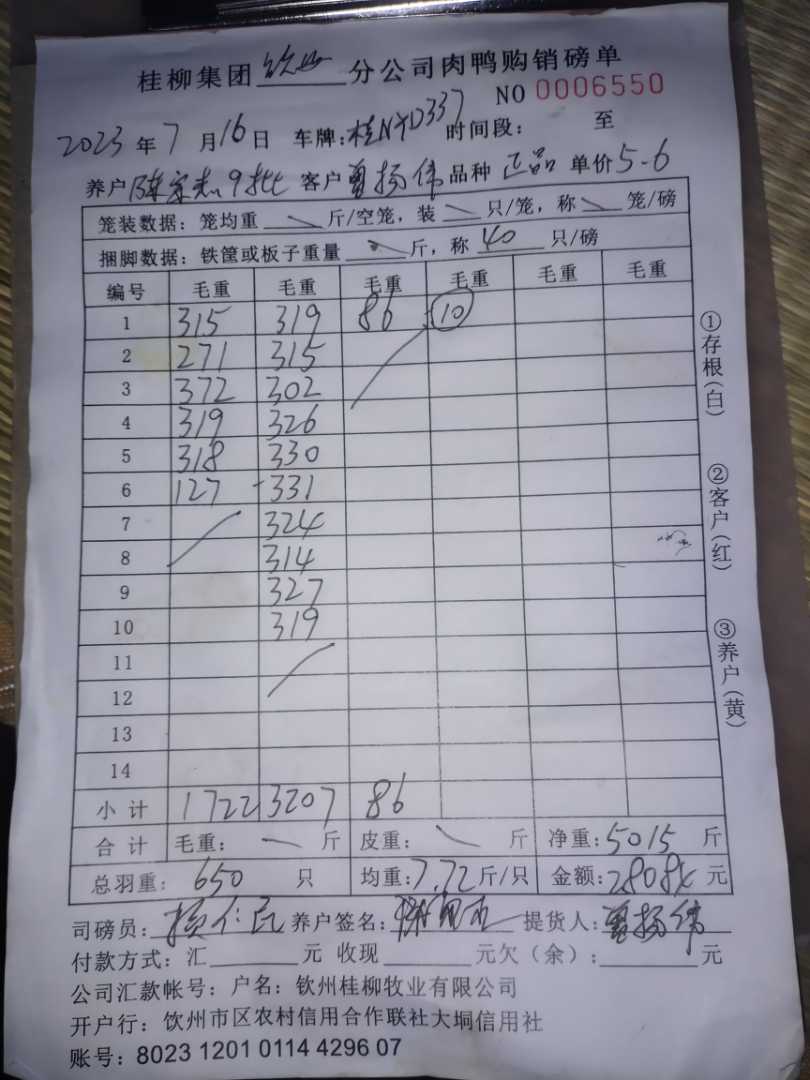 桂柳集团 钦州 分公司肉鸭购销磅单
NO 0006550
2023 年 7 月 16 日 车牌: 桂NYD337 时间段: 至
养户 陈家志 9批 客户 曾扬伟 品种 正品 单价 5.6
笼装数据: 笼均重 斤/空笼, 装 只/笼, 称 笼/磅
捆脚数据: 铁筐或板子重量 斤, 称 40 只/磅
编号 毛重 毛重 毛重 毛重 毛重 毛重
1 315 319 86 10
2 271 315
3 372 302
4 319 326
5 318 330
6 127 331
7 324
8 314
9 327
10 319
11
12
13
14
小计 1722 3207 86
合计 毛重: 斤 皮重: 斤 净重: 5015 斤
总羽重: 650 只 均重: 7.72 斤/只 金额: 28084 元
司磅员: 杨仁民 养户签名: 提货人: 曾扬伟
付款方式: 汇 元 收现 元欠(余): 元
公司汇款帐号: 户名: 钦州桂柳牧业有限公司
开户行: 钦州市区农村信用合作联社大垌信用社
账号: 8023 1201 0114 4296 07
①存根(白)
②客户(红)
③养户(黄)